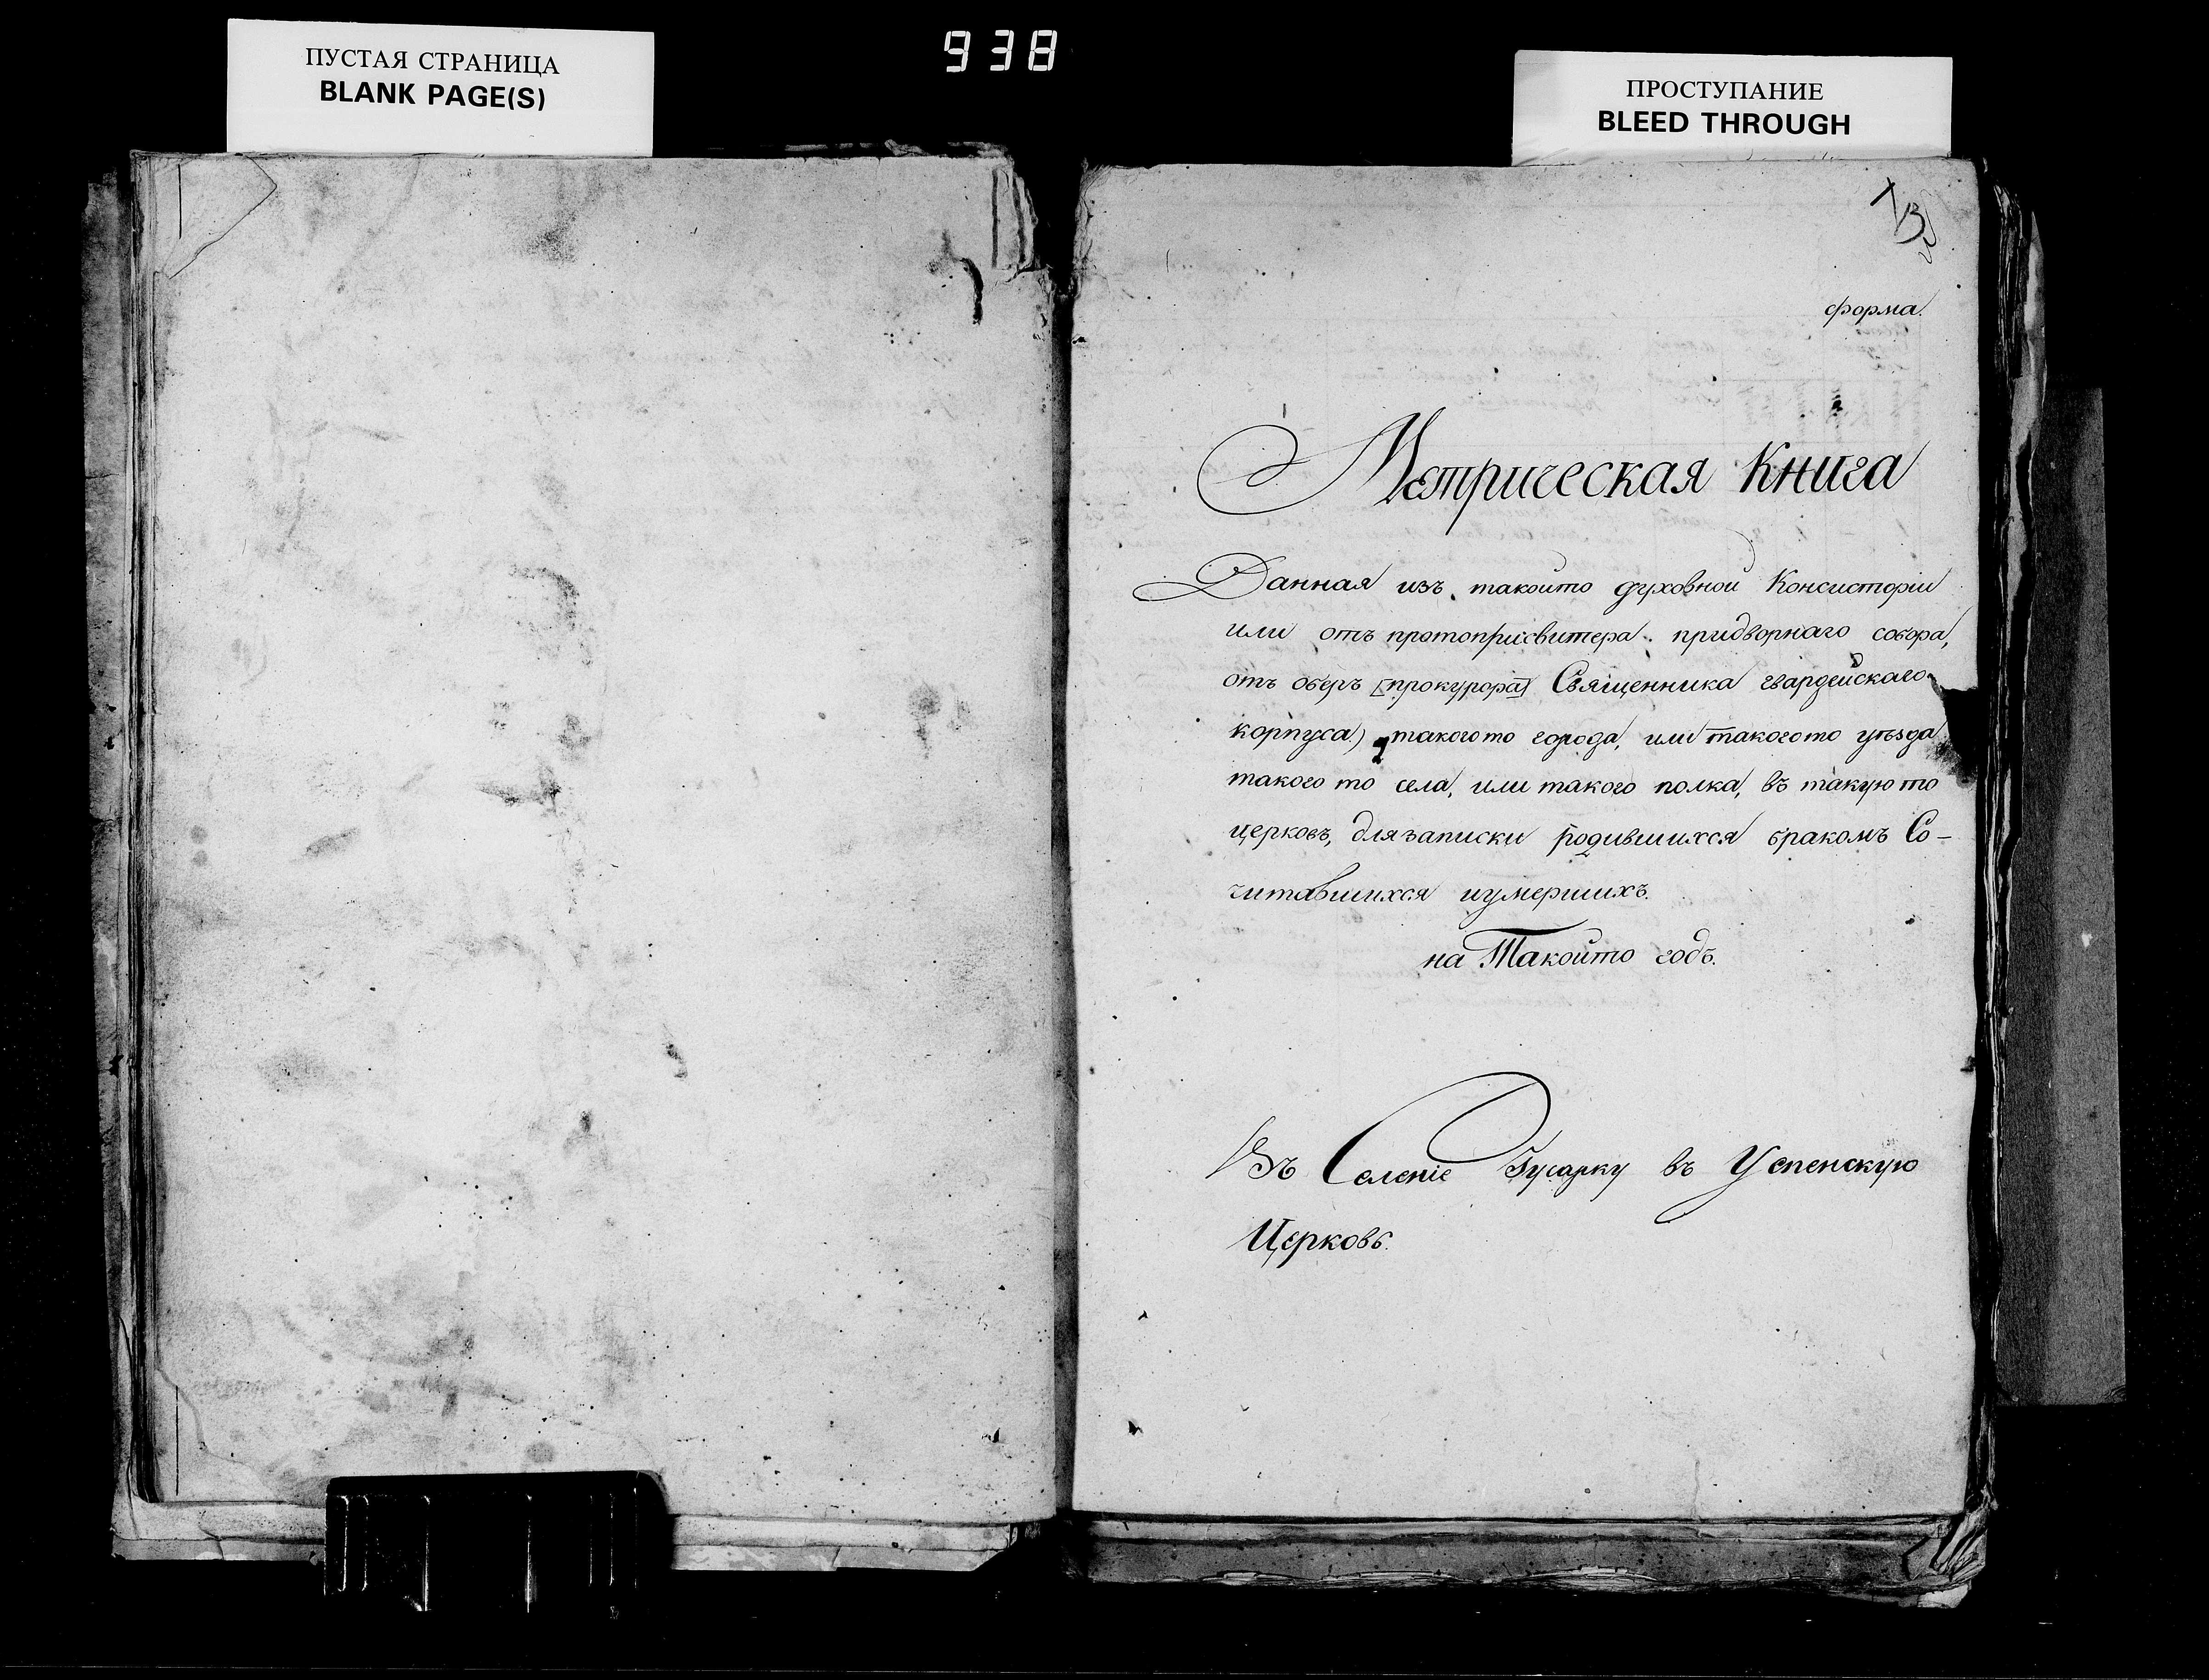 ПУСТАЯ СТРАНИЦА
BLANK PAGE(S)
938
ПРОСТУПАНИЕ
BLEED THROUGH
форма.
Метрическая Книга
Данная изъ такойто духовной Консисторіи
или отъ протоприсвитера придворнаго собора,
отъ оберъ [прокурора] Священника гвардейскаго
корпуса) такогото города, или такогото уѣзда
такого то села, или такого полка, въ такую то
церковь, для записки родившихся бракомъ Со-
читавшихся иумершихъ.
на Такойто годъ.
Въ Селеніе Гусарку въ Успенскую
Церковь.